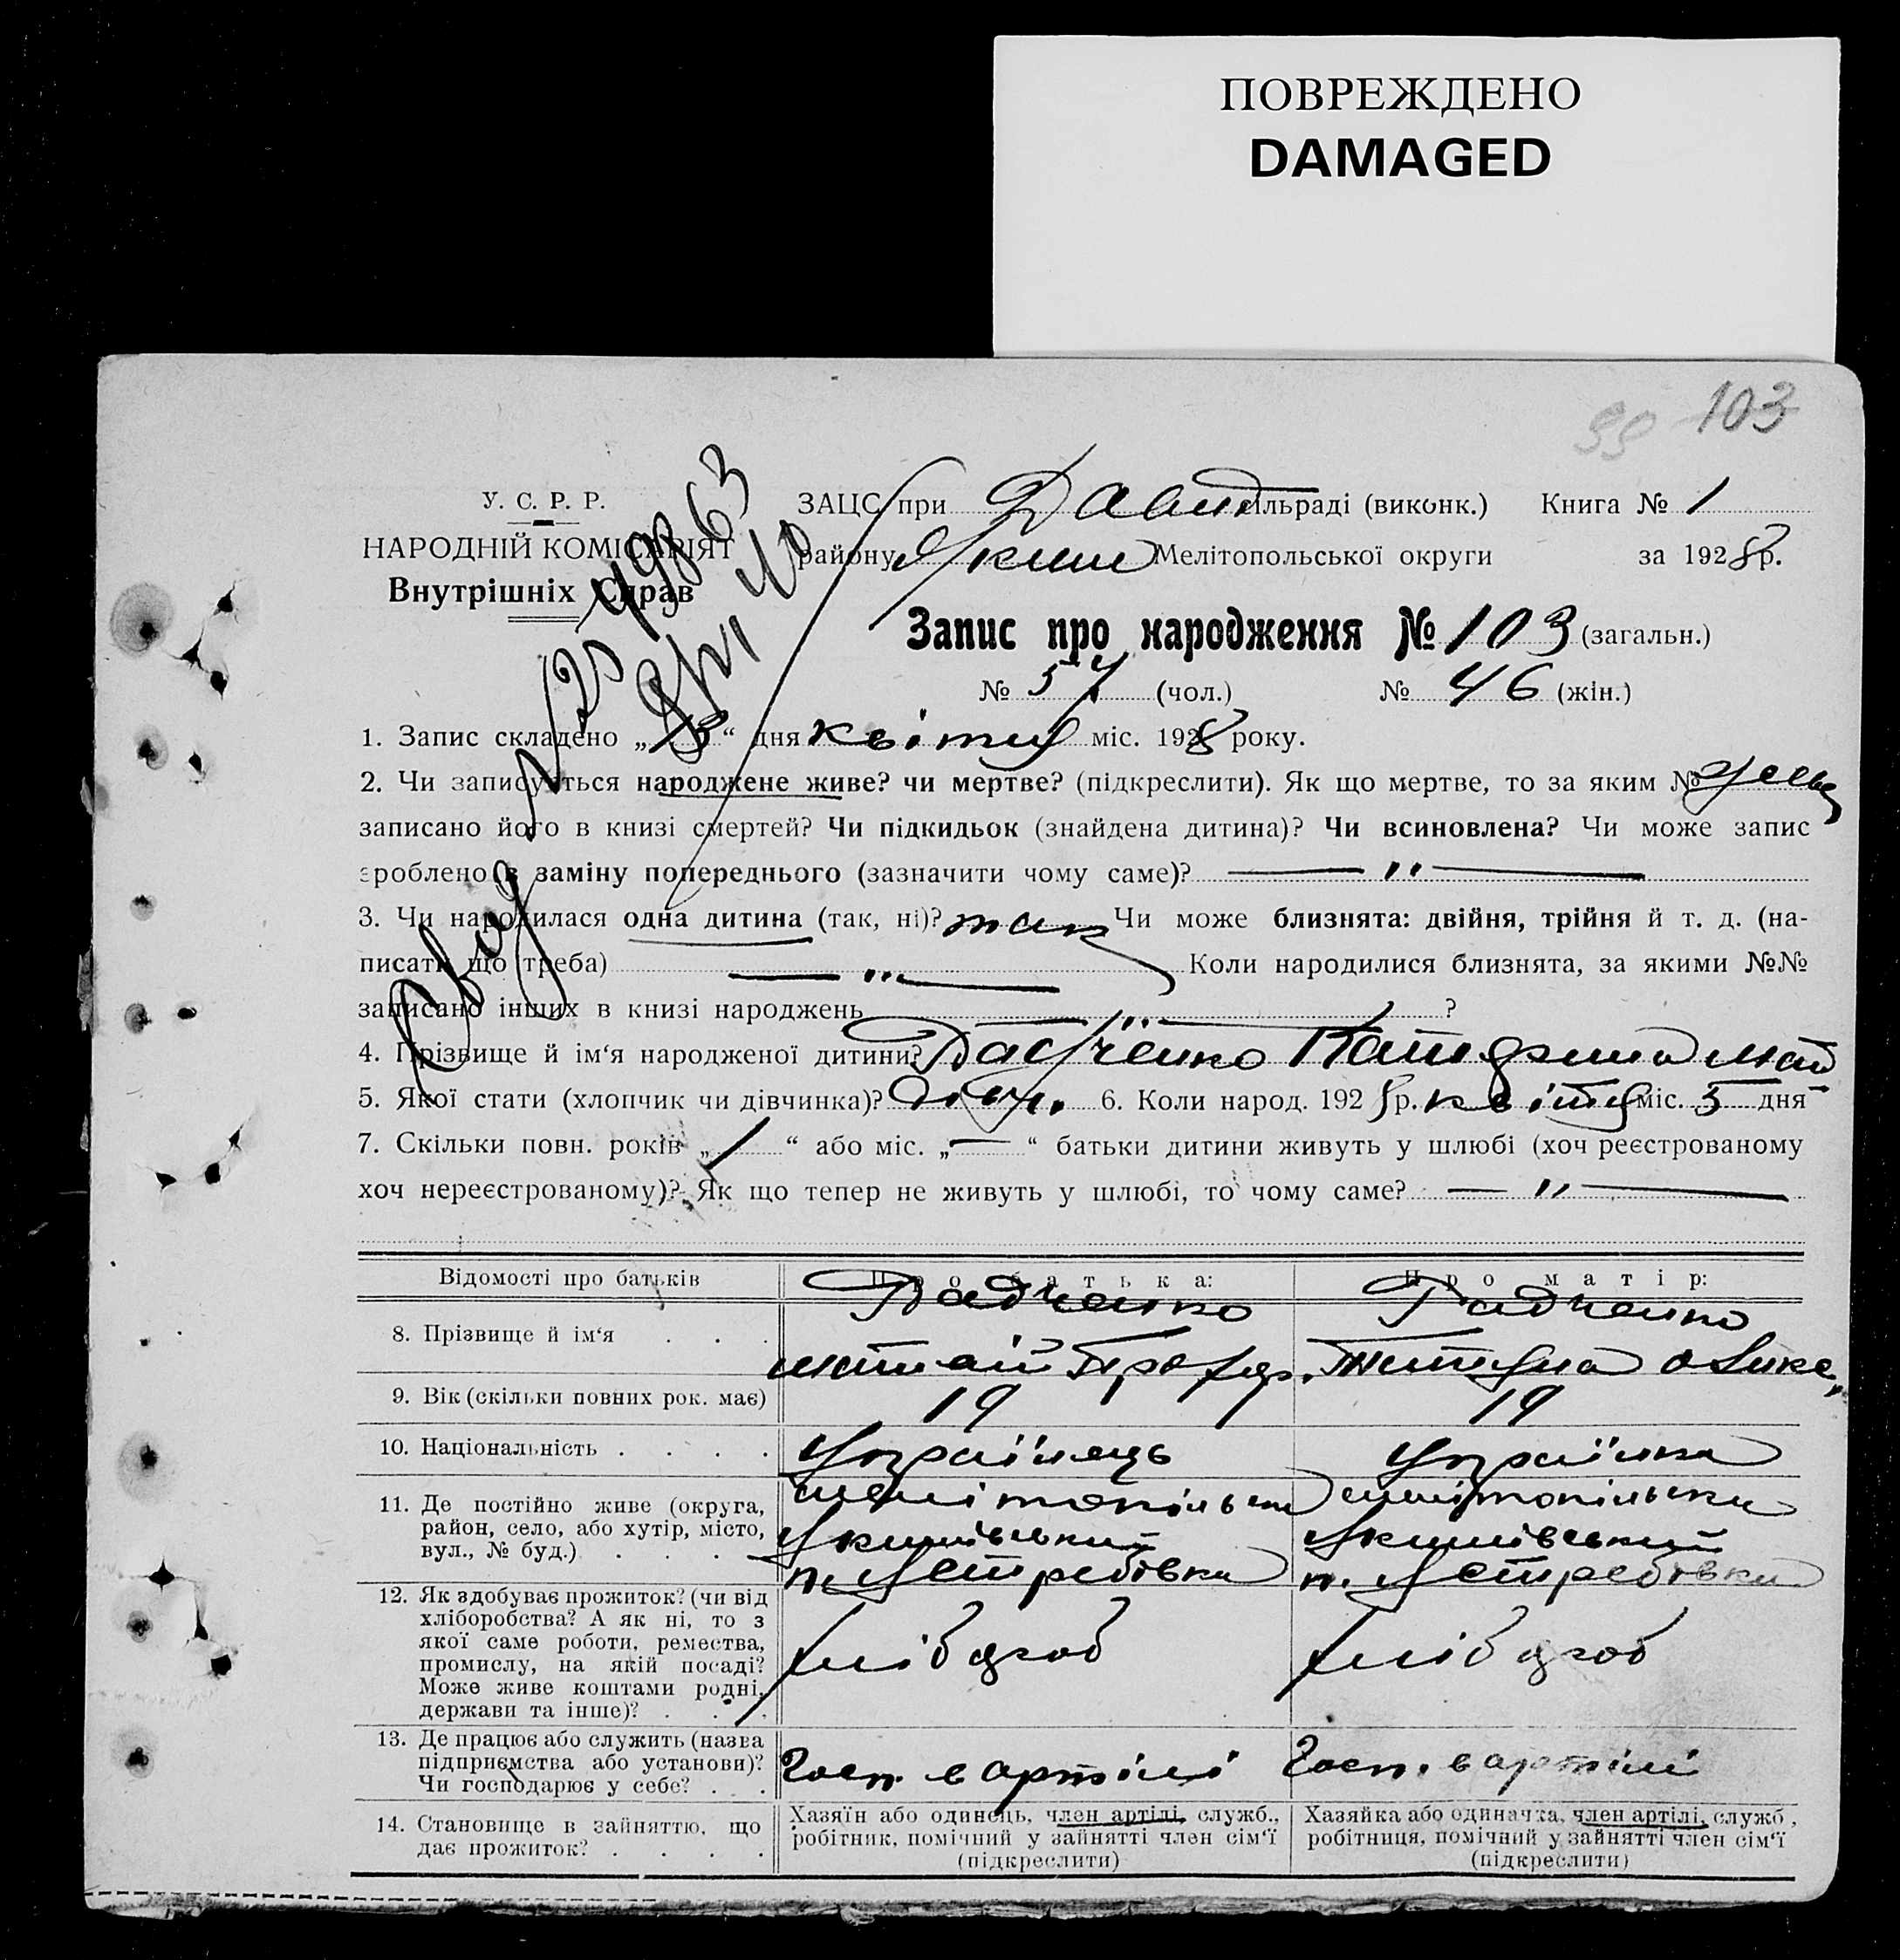 ПОВРЕЖДЕНО
DAMAGED
103
У. С. Р. Р.
НАРОДНІЙ КОМІСАРІЯТ
Внутрішніх Справ
ЗАЦС при Давид сільраді (виконк.) Книга № 1
району Яким Мелітопольської округи за 1928 р.
Запис про народження № 103 (загальн.)
№ 57 (чол.) № 46 (жін.)
1. Запис складено „ “ дня квітня міс. 1928 року.
2. Чи записується народжене живе? чи мертве? (підкреслити). Як що мертве, то за яким №
записано його в книзі смертей? Чи підкидьок (знайдена дитина)? Чи всиновлена? Чи може запис
зроблено в заміну попереднього (зазначити чому саме)? — „ —
3. Чи народилася одна дитина (так, ні)? так Чи може близнята: двійня, трійня й т. д. (на-
писати що треба) — „ — Коли народилися близнята, за якими №№
записано інших в книзі народжень — „ — ?
4. Прізвище й ім‘я народженої дитини? Радченко Катерина
5. Якої стати (хлопчик чи дівчинка)? дівч. 6. Коли народ. 1928 р. квітня міс. 5 дня
7. Скільки повн. років „ 1 “ або міс. „ — “ батьки дитини живуть у шлюбі (хоч реєстрованому
хоч нереєстрованому)? Як що тепер не живуть у шлюбі, то чому саме? — „ —
Відомості про батьків Про батька: Про матір:
Радченко Радченко
8. Прізвище й ім‘я . . .
9. Вік (скільки повних рок. має) 19 19
10. Національність . . . . Українець Українка
11. Де постійно живе (округа, Мелітопільськ Мелітопільськ
район, село, або хутір, місто, Якимівський Якимівський
вул., № буд.) . . . . п. Ястребівка п. Ястребівка
12. Як здобуває прожиток? (чи від
хліборобства? А як ні, то з
якої саме роботи, ремества, хлібороб хлібороб
промислу, на якій посаді?
Може живе коштами родні,
держави та інше)? . . .
13. Де працює або служить (назва
підприємства або установи)? Госп. в артілі Госп. в артілі
Чи господарює у себе? . . .
14. Становище в зайняттю, що
дає прожиток? . . . .
Хазяїн або одинець, член артілі, служб.,
робітник, помічний у зайнятті член сім‘ї
(підкреслити)
Хазяйка або одиначка, член артілі, служб.,
робітниця, помічний у зайнятті член сім‘ї
(підкреслити)